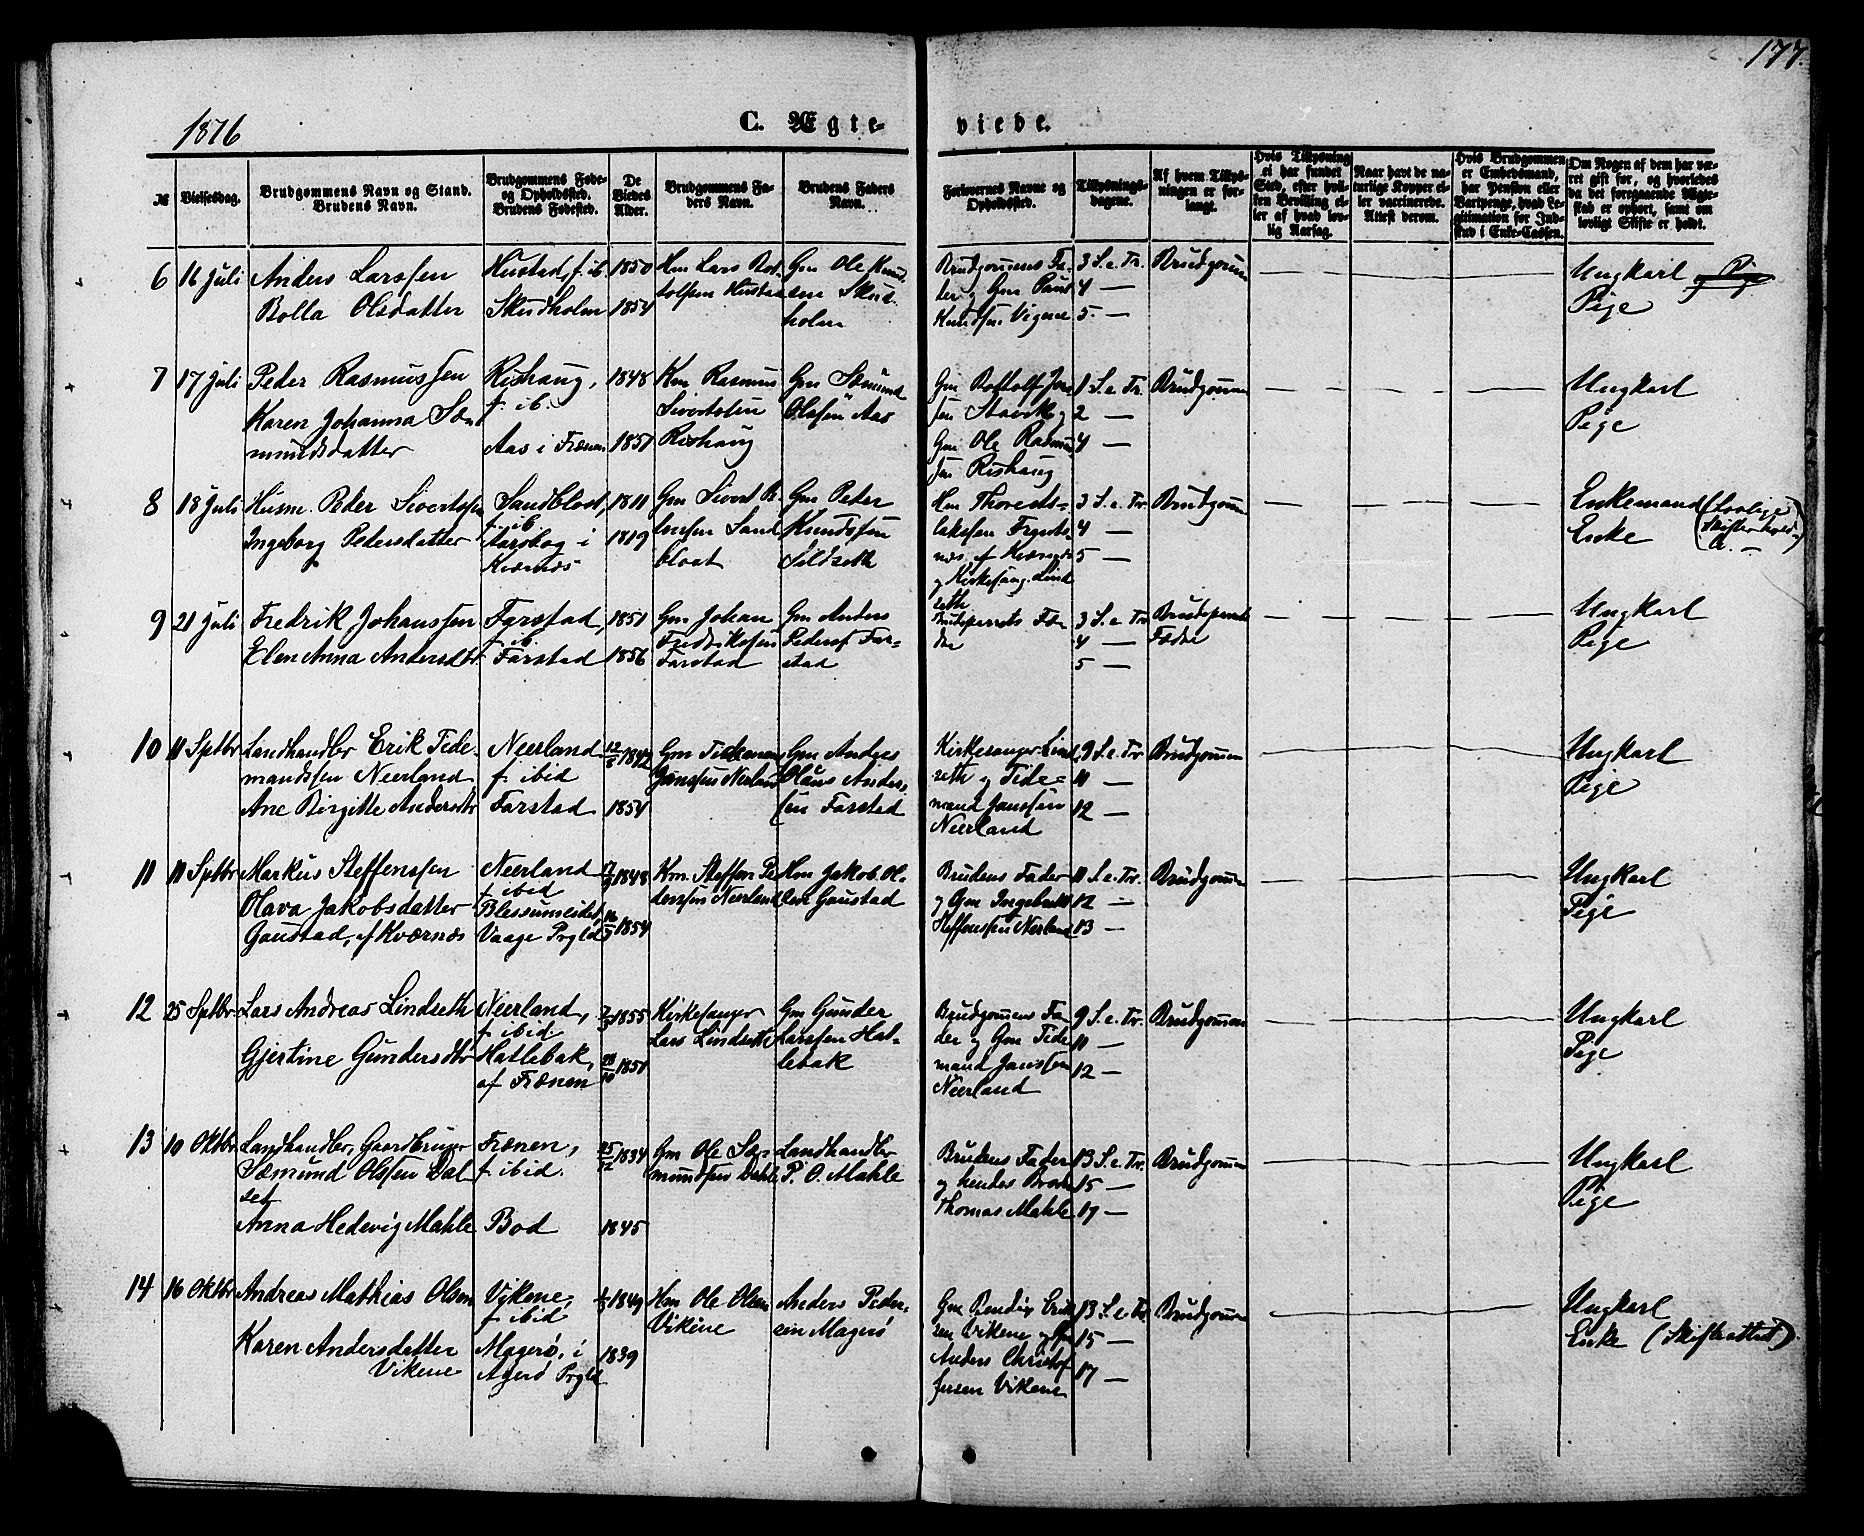 177.
1876
C. Ægte-
viede.
№
Vielsesdag.
Brudgommens Navn og Stand.
Brudens Navn.
Brudgommens Føde-
og Opholdssted.
Brudens Fødested.
De
Viedes
Alder.
Brudgommens Fa-
ders Navn.
Brudens Faders
Navn.
Forlovernes Navne og
Opholdssted.
Tillysnings-
dagene.
Af hvem Tillys-
ningen er for-
langt.
Hvis Tillysning
ei har fundet
Sted, efter hvil-
ken Bevilling el-
ler af hvad lov-
lig Aarsag.
Naar havt de na-
turlige Kopper el-
ler vaccinerede.
Attest derom.
Hvis Brudgommen
er Embedsmand,
har Pension eller
Vartpenge, hvad Le-
gitimation for Ind-
skud i Enke-Cassen.
Om Nogen af dem har væ-
ret gift før, og hvorledes
da det foregaaende Ægte-
skab er ophørt, samt om
lovligt Skifte er holdt.
6 16 Juli Anders Larssen
Bolla Olsdatter
Hustad, f. ib.
Skudholm
1850
1854
Hm Lars Bot-
tolfsen Hustad
Gm Ole Knud-
sen Skud-
holm
Brudgommens Fa-
der og Gm Paul
Knudsen Vigene
3 S. e. Tr.
4 —
5. —
Brudgommen
Ungkarl
Pige
7 17 Juli Peder Rasmussen
Karen Johanna Sæ-
mundsdatter
Rishaug,
f. ib.
Aas i Frænen
1848
1851
Km Rasmus
Sivertsen
Rishaug
Gm Sæmund
Olsen Aas
Gm Bottolf Jen-
sen Stavik og
Gm Ole Rasmus-
sen Rishaug
1 S. e. Tr.
2 —
4 —
Brudgommen
Ungkarl
Pige
8 18 Juli Husm. Peder Sivertsen
Ingeborg Pedersdatter
Sandblost,
f. ib
Aarsbog i
Kværnæs
1811
1819
Gm Sivert Pe-
dersen Sand
blost
Gm Peder
Knudssen
Sildseth
Hm Thored
laksen
næs af Kværnæs
og Kirkesang. Lind
seth
3 S. e. Tr
4 —
5 —
Brudgomm
Enkemand
Enke
(Lovligt
Skifte hold-
9 21 Juli Fredrik Johanssen
Elen Anna Andersdtr
Farstad,
f. ib.
Farstad
1851
1856
Gm Johan
Fredriksen
Farstad
Gm Anders
Pedersen Far-
stad
Brudeparrets Fæ-
dre
3 S. e. Tr
4 —
5 —
Brudeparrets
Fædre
Ungkarl
Pige
10 11 Sptbr Landhandler Erik Tide-
mandssen Neerland
Ane Birgitte Andersdtr
Neerland
f. ibid
Farstad
1842
1854
Gm Tidemand
Janssen Neerland
Gm Anders
Olaus Ander-
sen Farstad
Kirkesanger Lind
seth og Tide-
mand Janssen
Neerland
9 S. e. Tr
11 —
12 —
Brudgommen
Ungkarl
Pige
11 11 Sptbr Markus Steffenssen
Olava Jakobsdatter
Gaustad, af Kværnæs
Neerland
f. ibid
Vaage Prgld
1848
1854
Km. Steffen Pe
derssen Neerland
Hm Jakob Ol-
sen Gaustad
Brudens Fader
og Gm Ingebrikt
Steffenssen Neerland
11 S. e. Tr.
12 —
13 —
Brudgommen
Ungkarl
Pige
12 25 Sptbr. Lars Andreas Lindseth
Gjertine Gundersdtr
Neerland,
f. ibid
Hatlebak,
af Frænen
1855
1851
Kirkesanger
Lars Lindseth
Gm Gunder
Larssen Hat-
lebak
Brudgommens Fa-
der og Gm Tide
mand Janssen
Neerland
9 S. e. Tr.
11 —
12 —
Brudgommen
Ungkarl
Pige
13 10 Oktbr Landhandler, Gaardbruger
Sæmund Olssen Dal
set
Anna Hedevig Mahle
Frænen,
f. ibid.
Bod
1834
1845
Gm Ole Sæ-
mundsen Dahle
Landhandler
P. O. Mahle
Brudens Fader
og hendes Broder
Thomas Mahle
13 S. e. Tr.
15 —
17 —
Brudgommen
Ungkarl
Pige
14 16 Oktbr Andreas Mathias Olsen
Karen Andersdatter
Vikene
Vikene,
f. ibid
Magerø, i
Agerø Prgld
1849
1839
Hm Ole Olsen
Vikene
Anders Peder-
sen Magerø
Gm Bendix Erik
sen Vikene og
Anders Christof
fersen Vikene
13 S. e. Tr.
15 —
17 —
Brudgommen
Ungkarl
Enke (Skifteattest)